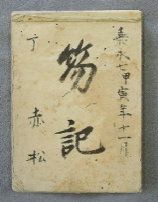 嘉永七甲寅年十一月
笏記
赤松